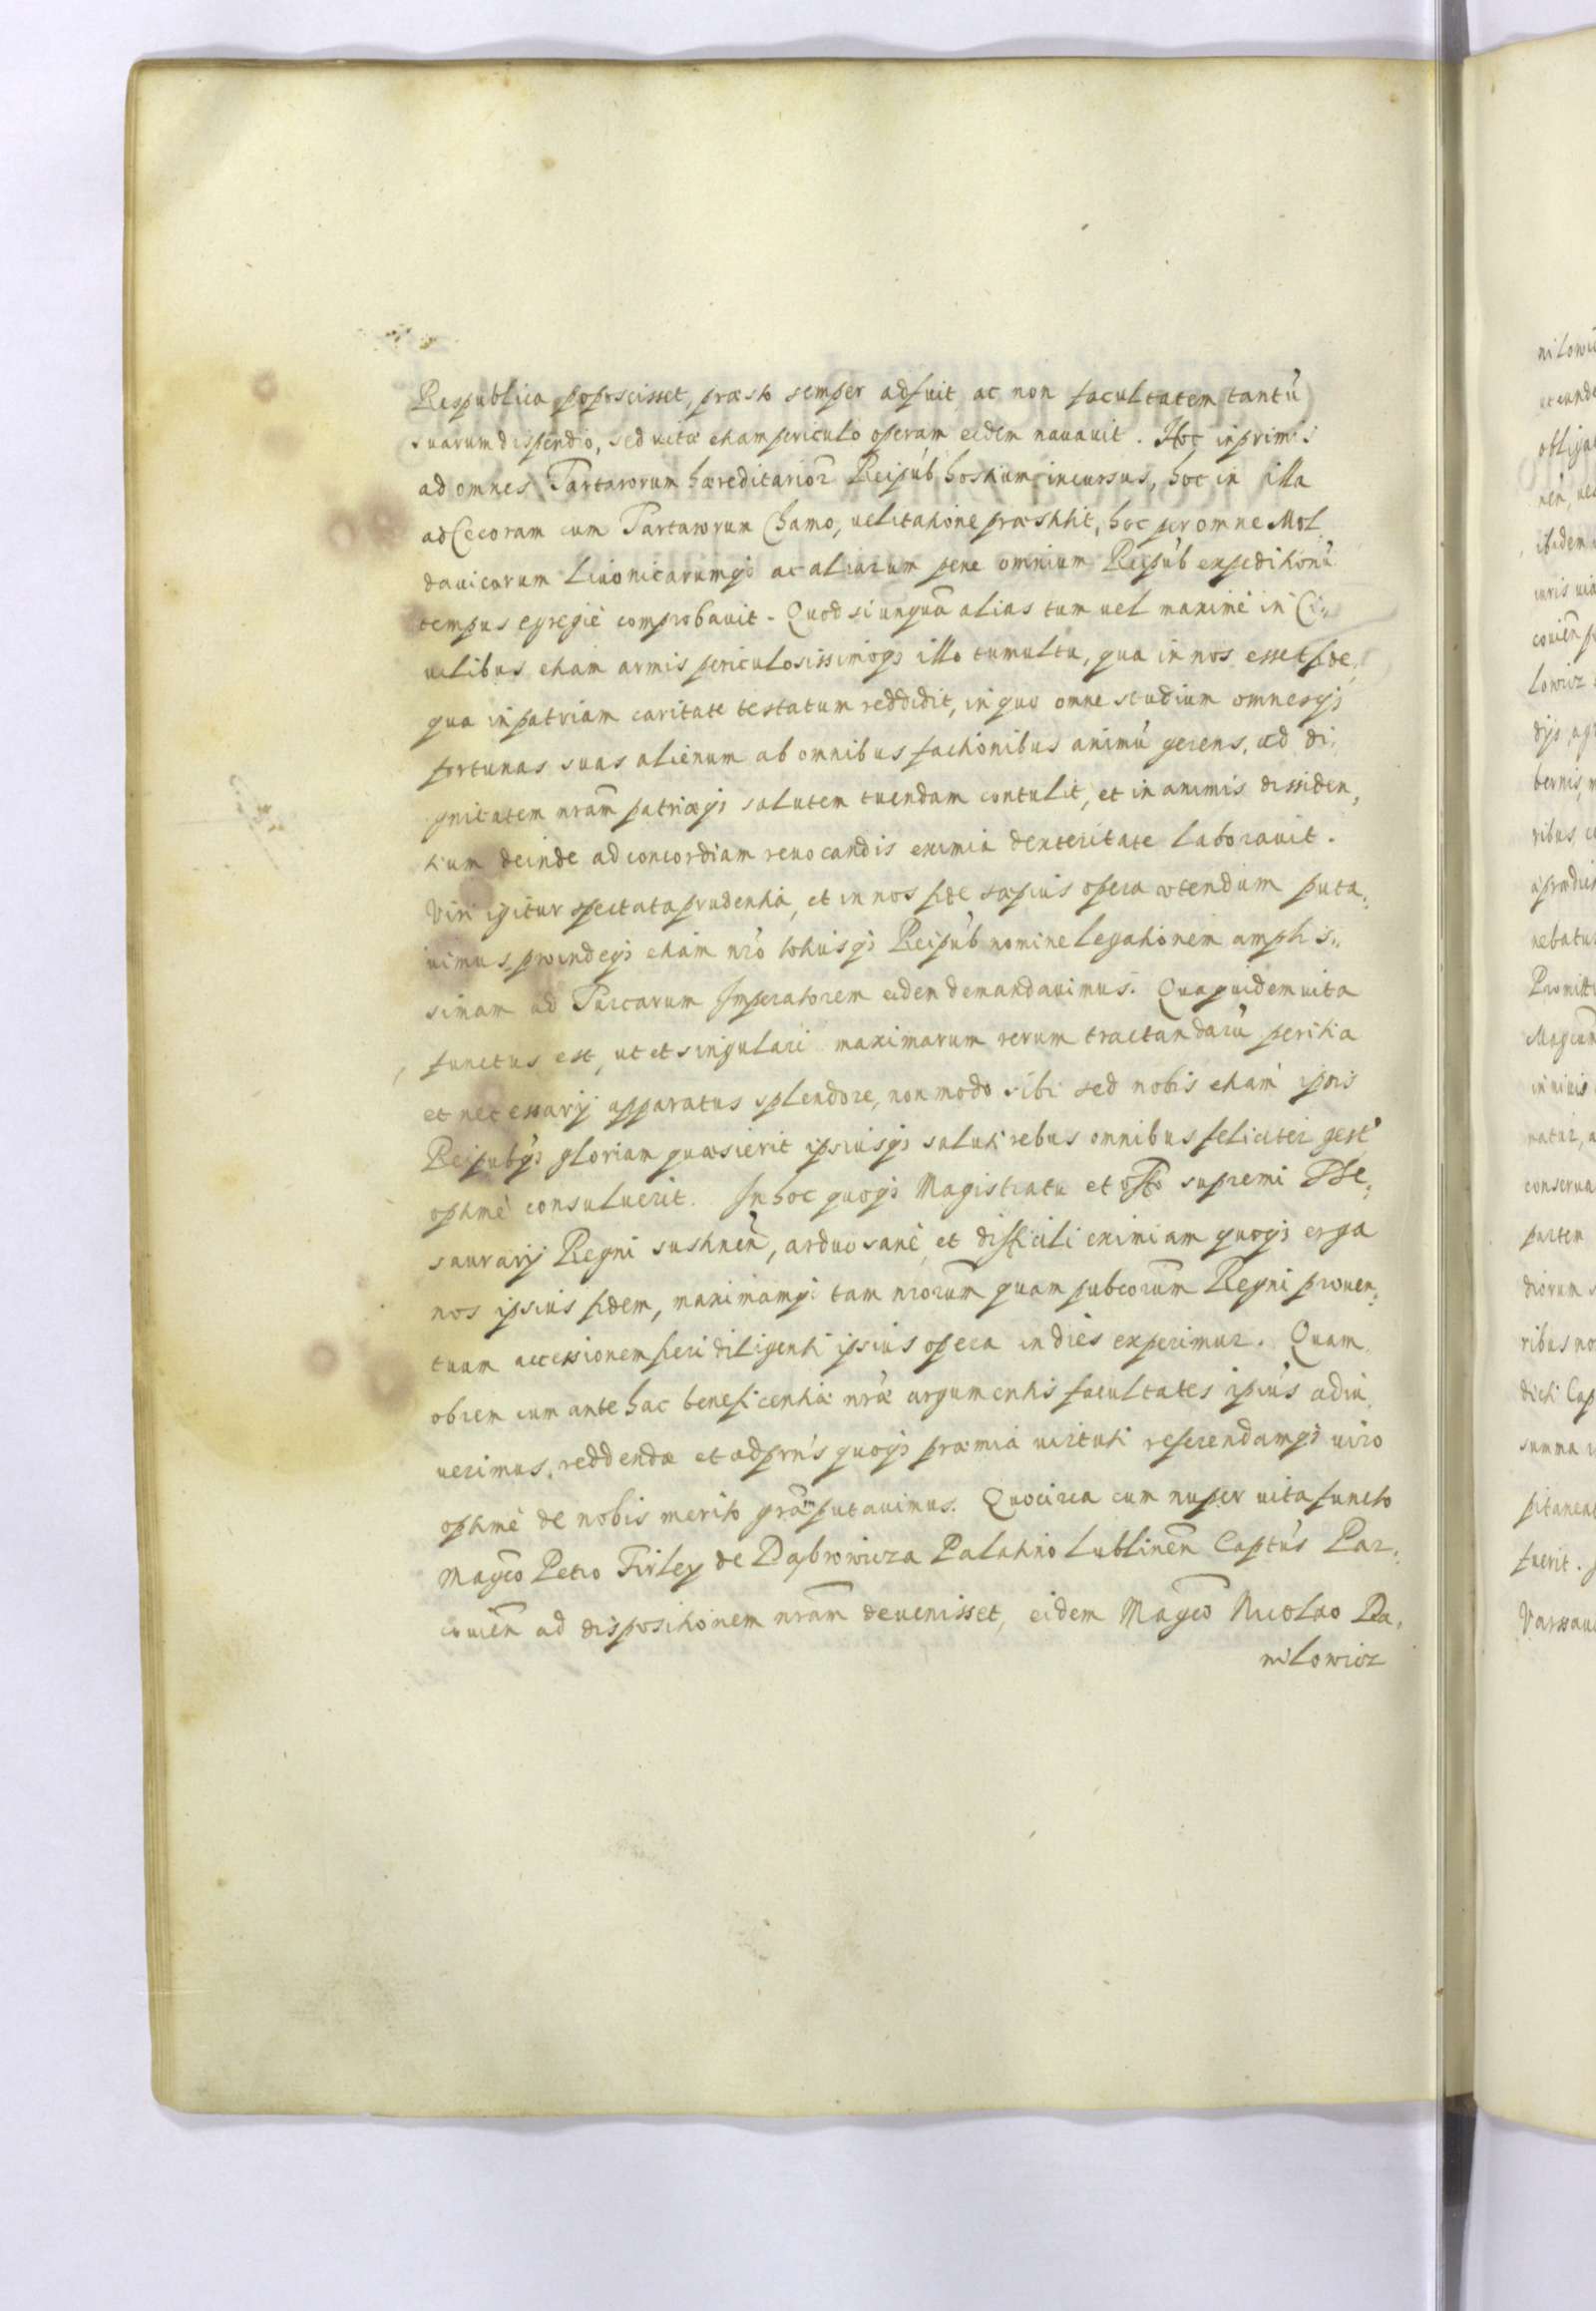 Respublica poposcisset, præsto semper adfuit, ac non facultatem tantu
suarum dispendio, sed vitæ etiam periculo operam eidem nauauit. Hoc inprimis
ad omnes Tartarorum hæreditarior Reipub hostium incursus, hoc in illa
ad Cecoram cum Tartarorum Chamo, uelitatione præstitit, hoc per omne Mol,
dauicarum Liuonicarumqs ac aliarum pene omnium Reipub expeditionu
tempus egregie comprobauit. Quod si unqua alias tum uel maxime in Ci,,
uilibus etiam armis periculosissimoqs illo tumultu, qua in nos esset fide,
qua in patriam caritate testatum reddidit, in quo omne studium omnesqs
fortunas suas alienum ab omnibus factionibus animu gerens, ad di,
gnitatem nram patriæqs salutem tuendam contulit, et in animis dissiden,
tium deinde ad concordiam reuocandis eximia dexteritate laborauit.
Viri igitur spectata prudentia, et in nos fide sæpius opera utendum puta,
uimus, proindeqs etiam nro totiusqs Reipub nomine legationem amplis,,
simam ad Turcarum Imperatorem eidem demandauimus. Qua quidem uita
functus est, ut et singulari maximarum rerum tractandaru peritia
et necessarij apparatus splendore, non modo sibi sed nobis etiam ipsis
Reipubqs gloriam quæsierit ipsiusqs saluti rebus omnibus feliciter gest
optime consuluerit. In hoc quoqs Magistratu et offo supremi The,
saurarij Regni sustinen, arduo sane, et difficili eximiam quoqs erga
nos ipsius fidem, maximamqs tam nrorum quam pubcorum Regni prouen,
tuum accessionem fieri diligenti ipsius opera in dies experimur. Quam
obrem cum ante hac beneficentiæ nræ argumentis facultates ipius adiu,
uerimus, reddenda et adprns quoqs præmia uirtuti referendamqs uiro
optime de nobis merito gram putauimus. Quocirca cum nuper uita functo
Magco Petro Firley de Dąbrowicza Palatino Lublinen Captus Par,
couien ad dispositionem nram deuenisset, eidem Magco Nicolao Da,
nilowicz